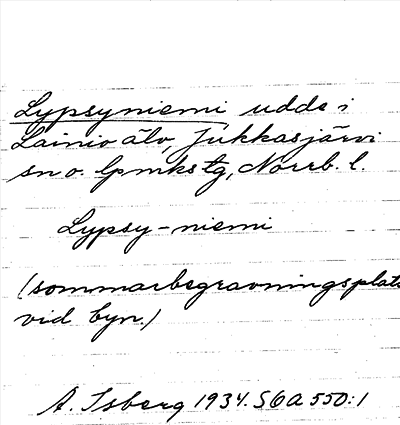 Lypsyniemi udde i
Lainio älv, Jukkasjärvi
sn o. lpmkstg, Norrb. l.
Lypsy-niemi
(sommarbegravningsplats
vid byn.)
A. Isberg 1934. S6A 550:1